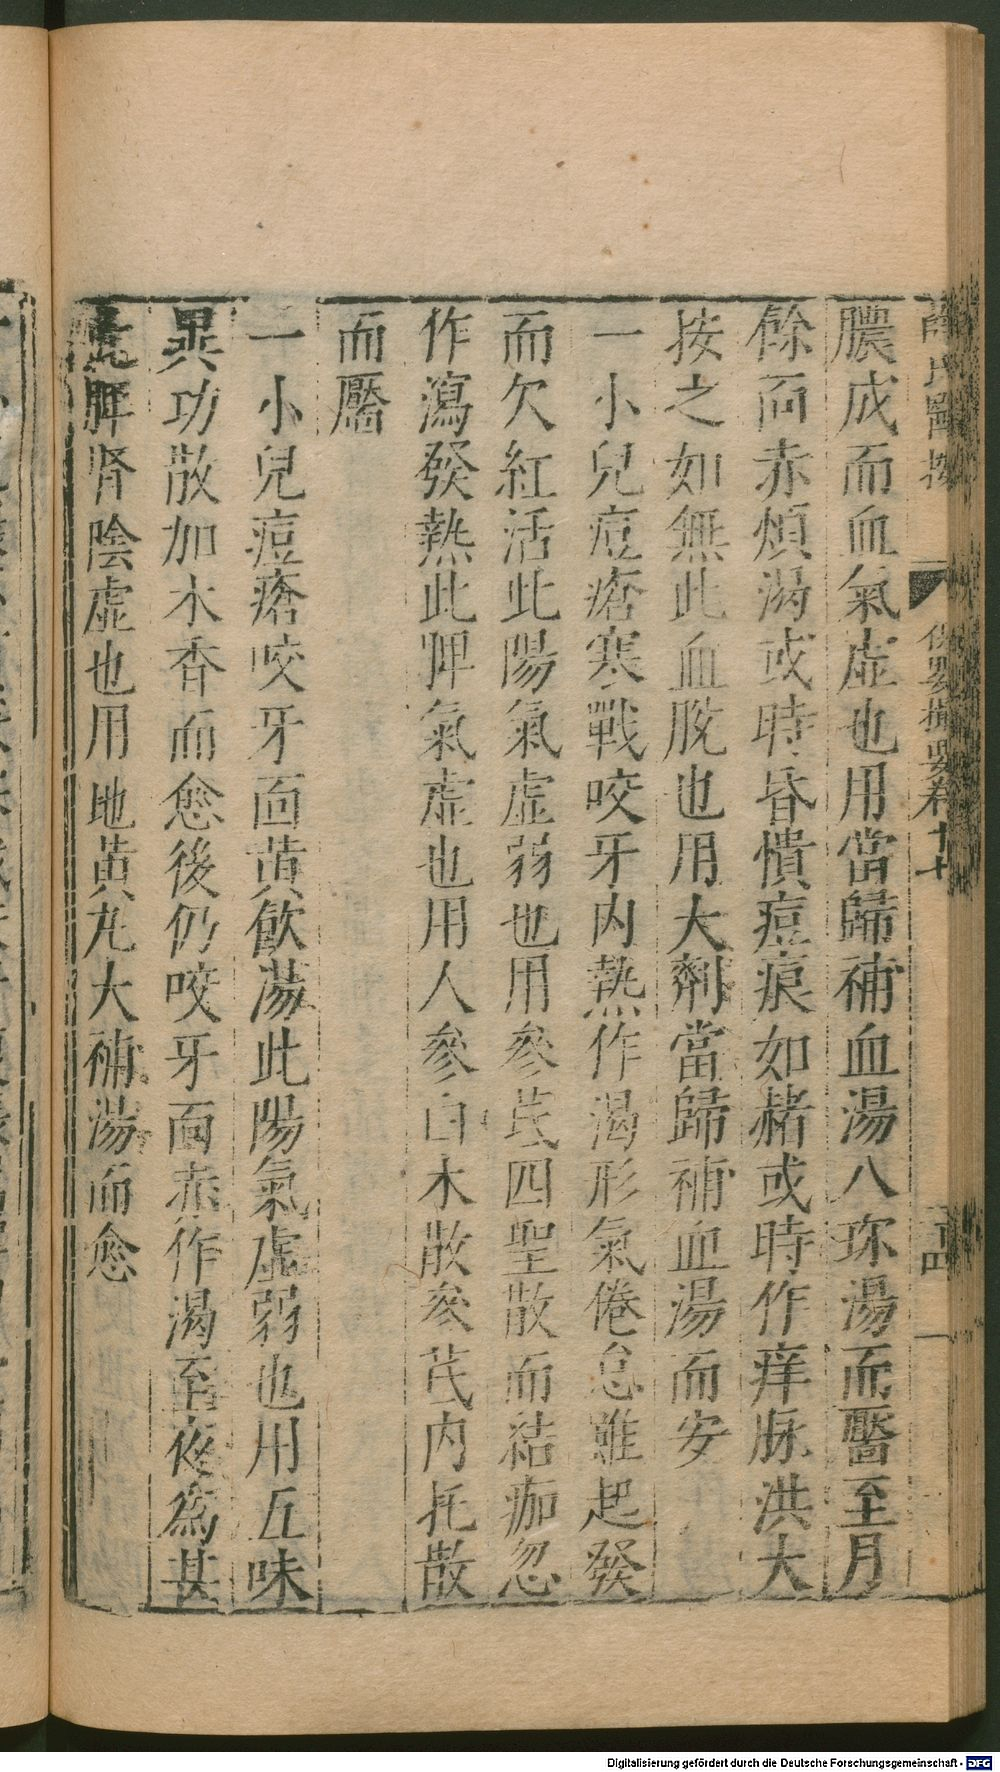 膿成而血氣虛也用當歸補血湯八珎湯而醫至月
餘面赤煩渴或時昏憒痘痕如赭或時作痒脉洪大
按之如無此血脫也用大劑當歸補血湯而安
一小兒痘瘡寒戰咬牙内熱作渴形氣倦怠雖起發
而欠紅活此陽氣虛弱也用參芪四聖散而結痂忽
作瀉發熱此脾氣虛也用人參白朮散參芪内托散
而靨
一小兒痘瘡咬牙面黄飲湯此陽氣虛弱也用五味
異功散加木香而愈後仍咬牙面赤作渴至夜爲甚
此脾腎陰虛也用地黄丸大補湯而愈
薛氏醫按
保嬰撮要卷十七
十四
Digitalisierung gefördert durch die Deutsche Forschungsgemeinschaft - DFG